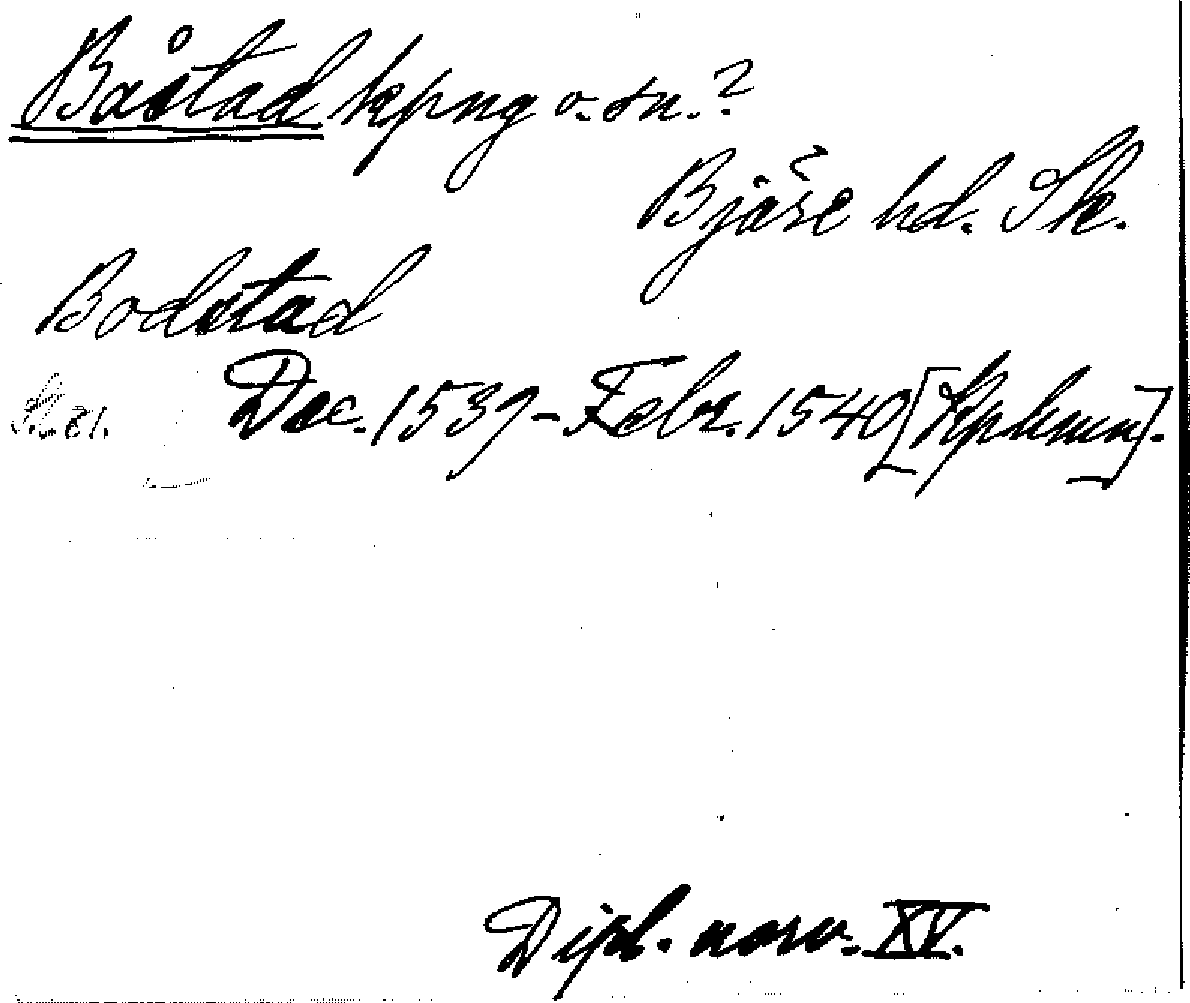 Båstad kpng o. sn.?
Bjäre hd. Sk.
Bodstad
Dec. 1539-Febr. 1540 [Kphmn].
81.
Dipl. norv. XV.